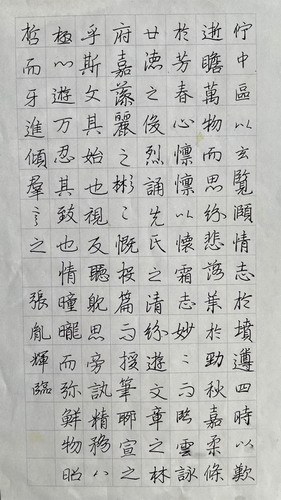 佇中區以玄覽頤情志於墳遵四時以歎
逝瞻萬物而思紛悲落葉於勁秋嘉柔條
於芳春心懍懍以懷霜志妙〻而臨雲詠
廿德之俊烈誦先民之清紛遊文章之林
府嘉藻麗之彬〻慨投篇而援筆聊宣之
乎斯文其始也視反聽耽思旁訊精務八
極心遊万忍其致也情曈曨而弥鮮物昭
哲而牙進傾羣言之
張胤輝臨